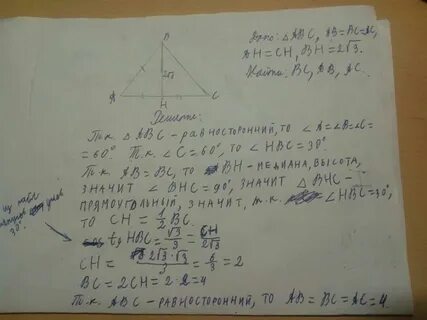 Дано: △ABC, AB=BC=AC,
AH=CH, BH=2√3.
Найти: BC, AB, AC.
B
2√3
A
H
C
Решение:
Т.к. △ABC - равносторонний, то ∠A=∠B=∠C=
=60°. Т.к. ∠C=60°, то ∠HBC=30°.
Т.к. AB=BC, то BH - медиана, высота,
значит ∠BHC=90°, значит △BHC -
прямоугольный, значит, т.к. ∠HBC=30°,
то CH=1/2 BC.
из табл
углов
30°
tg HBC=√3/3=CH/2√3
CH=2√3·√3/3=6/3=2
BC=2CH=2·2=4
Т.к. ABC - равносторонний, то AB=BC=AC=4.